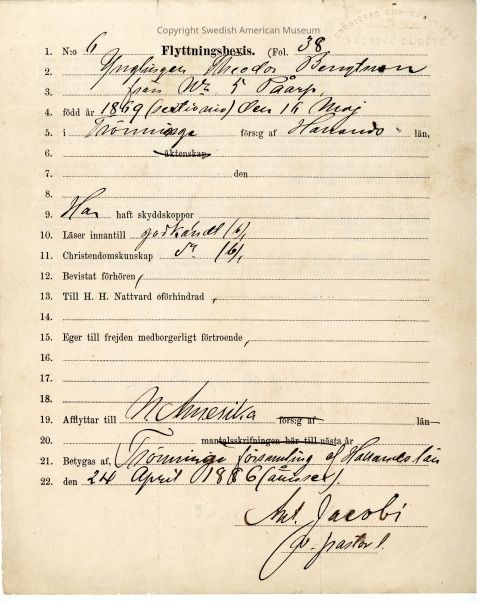 Copyright Swedish American Museum
1. N:o 6 Flyttningsbevis. (Fol. 38
2. Ynglingen Theodor Bengtsson
3. från No 5 Påarp,
4. född år 1869 (sextionio) den 16 Maj
5. i Trönninge förs:g af Hallands län,
6. äktenskap
7. den
8.
9. Har haft skyddskoppor
10. Läser innantill godkändt (b),
11. Christendomskunskap (b),
12. Bevistat förhören,
13. Till H. H. Nattvard oförhindrad,
14.
15. Eger till frejden medborgerligt förtroende,
16.
17.
18.
19. Afflyttar till N Amerika förs:g af län
20. mantalsskrifningen här till nästa år
21. Betygas af, Trönninge församling af Hallands län
22. den 24 April 1886
Jacobi
v. pastor